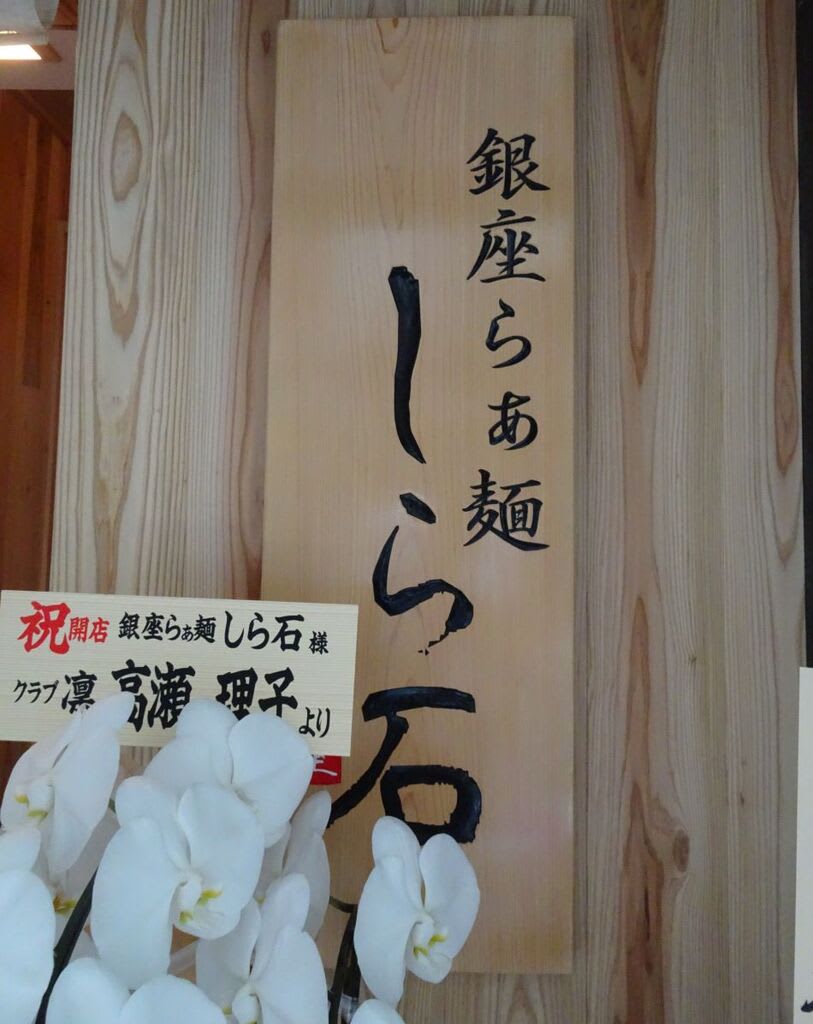 銀座らぁ麺
しら石
祝開店 銀座らぁ麺 しら石 様
クラブ 凛 高瀬 理子 より